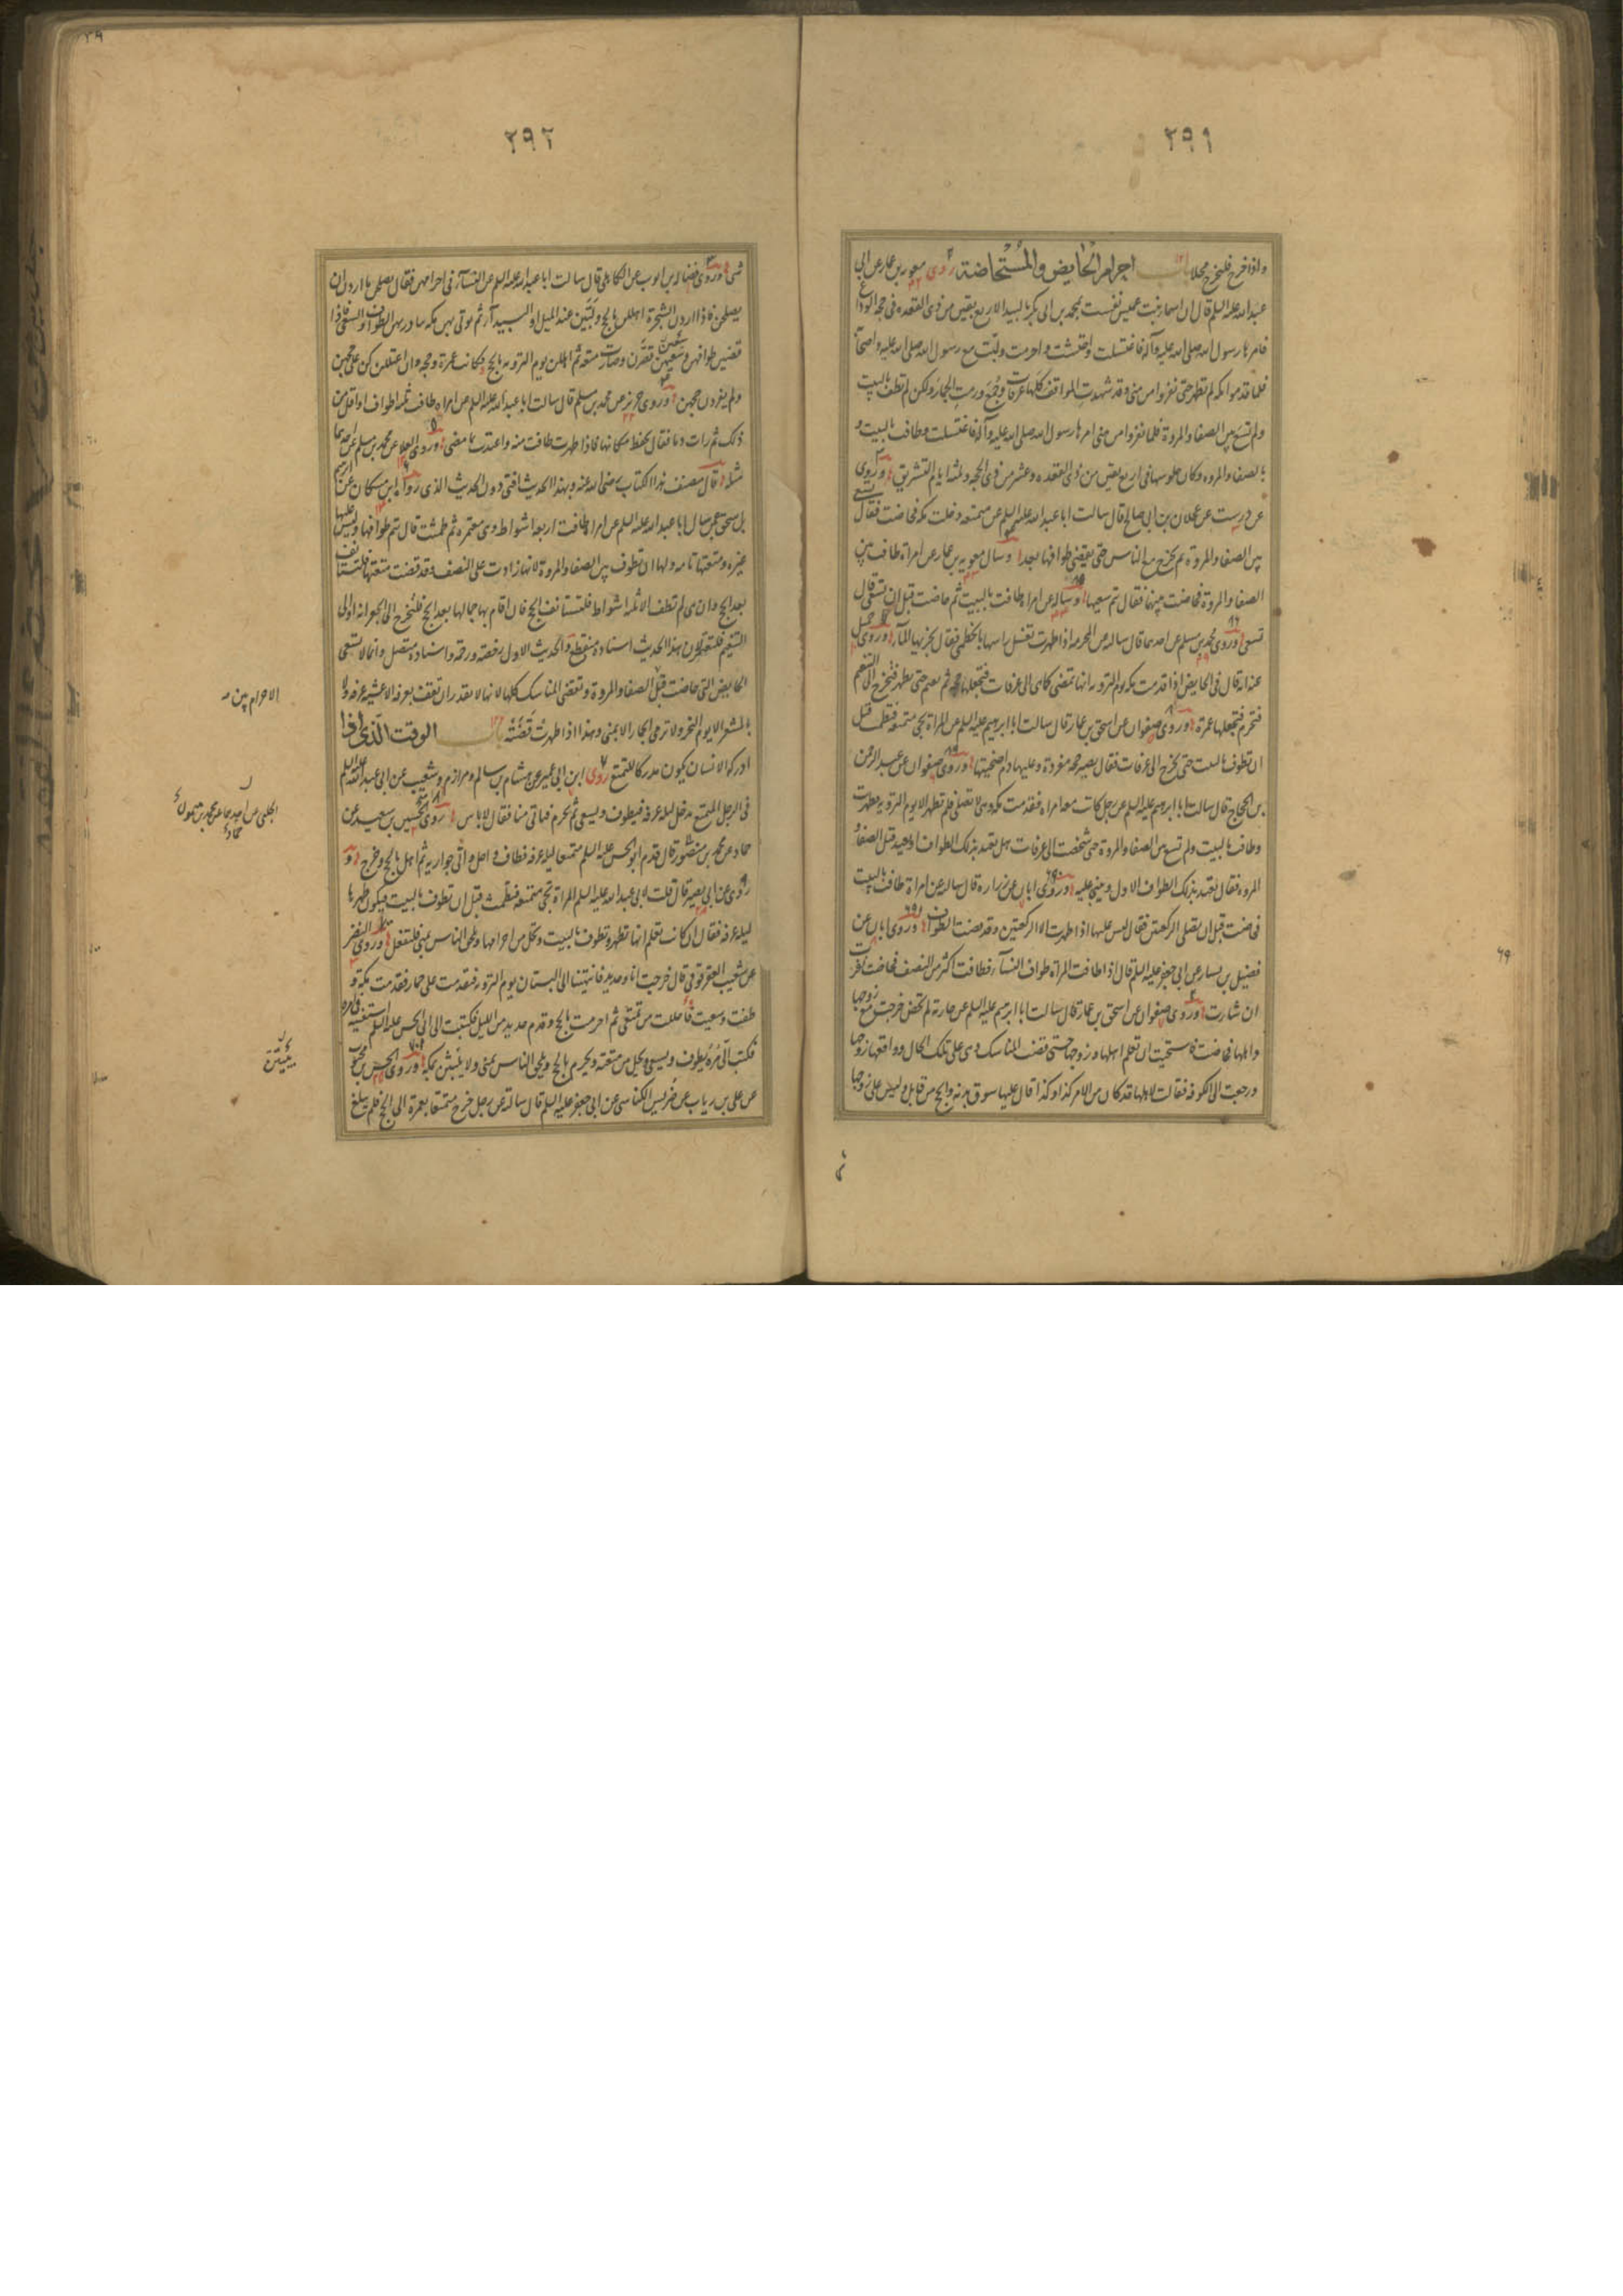 ٢٩١
واذا خرج فليخرج محلا باب احرام الحايض والمستحاضة روى معوية بن عمار عن ابى
عبد الله عليه السلم قال ان اسماء بنت عميس نفست بمحمد بن ابى بكر بالبيداء لاربع بقين من ذى القعده فى حجة الوداع
فامرها رسول الله صلى الله عليه وآله فاغتسلت واحتشت واحرمت ولبّت مع رسول الله صلى الله عليه وآله واصحابه
فلما قدموا مكه لم تطهر حتى نفروا من منى وقد شهدت المواقف كلها عرفات وجمع ورمت الجمار ولكن لم تطف بالبيت
ولم تسع بين الصفا والمروة فلما نفروا من منى امرها رسول الله صلى الله عليه وآله فاغتسلت وطافت بالبيت و
بالصفا والمروه وكان جلوسها فى اربع بقين من ذى القعده وعشر من ذى الحجه وثلثه ايام التشريق وروى
عن درست عن عجلان بن ابى صالح قال سالت ابا عبد الله عليه السلم عن متمتعه دخلت مكه فحاضت فقال تسعى
بين الصفا والمروة ثم تخرج مع الناس حتى تقضى طوافها بعد وسال معويه بن عمار عن امراة طافت بين
الصفا والمروة فحاضت بينهما فقال تتم سعيها وساله عن امراه طافت بالبيت ثم حاضت قبل ان تسعى قال
تسعى وروى محمد بن مسلم عن احدهما قال سالته عن المحرمه اذا طهرت تغسل راسها بالخطمى فقال يجزيها الماء وروى جميل
عنه انه قال فى الحايض اذا قدمت مكه يوم الترويه انها تمضى كما هى الى عرفات فتجعلها حجه ثم تقيم حتى تطهر فتخرج الى التنعيم
فتحرم فتجعلها عمرة وروى صفوان عن اسحق بن عمار قال سالت ابا ابرهيم عليه السلم عن المراة تجى متمتعه فتطمث قبل
ان تطوف بالبيت حتى تخرج الى عرفات فقال تصير حجه مفردة وعليها دم اضحيتها وروى صفوان عن عبد الرحمن
بن الحجاج قال سالت ابا ابرهيم عليه السلم عن رجل كانت معه امراه فقدمت مكه وهى لا تصلى فلم تطهر الا يوم الترويه فطهرت
وطافت بالبيت ولم تسع بين الصفا والمروة حتى شخصت الى عرفات هل تعتد بذلك الطواف او تعيد قبل الصفا و
المروه فقال تعتد بذلك الطواف الاول وتبنى عليه وروى ابان عن زراره قال سالته عن امراة طافت بالبيت
فحاضت قبل ان تصلى الركعتين فقال ليس عليها اذا طهرت الا الركعتين وقد قضت الطواف وروى ابان عن
فضيل بن يسار عن ابى جعفر عليه السلم قال اذا طافت المراة طواف النساء فطافت اكثر من النصف فحاضت نفرت
ان شاءت وروى صفوان عن اسحق بن عمار قال سالت ابا ابرهيم عليه السلم عن جارية لم تحض خرجت مع زوجها
واهلها فحاضت فاستحيت ان تعلم اهلها وزوجها حتى قضت المناسك وهى على تلك الحال وواقعها زوجها
ورجعت الى الكوفه فقالت لاهلها قد كان من الامر كذا وكذا قال عليها سوق بدنه والحج من قابل وليس على زوجها
٢٩٢
شى وروى فضاله بن ايوب عن الكاهلى قال سالت ابا عبد الله عليه السلم عن النساء فى احرامهن فقال يصلحن ما اردن ان
يصلحن فاذا اردن الشجرة اهللن بالحج ولبّين عند الميل اول البيداء ثم يوتى بهن مكه يبادر بهن الطواف والسعى فاذا
قضين طوافهن وسعين سعيهن قصّرن وصارت متعه ثم اهللن يوم الترويه بالحج فكانت عمرة وحجه وان اعتللن كن على حجهن
ولم يفردن حجهن وروى حريز عن محمد بن مسلم قال سالت ابا عبد الله عليه السلم عن امراه طافت ثلثه اطواف او اقل من
ذلك ثم رات دما فقال تحفظ مكانها فاذا طهرت طافت منه واعتدت بما مضى وروى العلا عن محمد بن مسلم عن احدهما
مثله قال مصنف هذا الكتاب رضى الله عنه وبهذا الحديث افتى دون الحديث الذى رواه ابن مسكان عن ابرهيم
بن اسحق عمن سال ابا عبد الله عليه السلم عن امراه طافت اربعه اشواط وهى معتمره ثم طمثت قال تتم طوافها وليس عليها
غيره ومتعتها تامه ولها ان تطوف بين الصفا والمروة لانها زادت على النصف وقد قضت متعتها فلتستانف
بعد الحج وان هى لم تطف الا ثلثه اشواط فلتستانف الحج فان اقام بها جمالها بعد الحج فلتخرج الى الجعرانه او الى
التنعيم فلتعتمر لان هذا الحديث اسناده منقطع والحديث الاول رخصه ورحمه واسناده متصل وانما لا تسعى
الحايض التى حاضت قبل الصفا والمروة وتقضى المناسك كلها لانها لا تقدر ان تقف بعرفه الا عشيه عرفه ولا
بالمشعر الا يوم النحر ولا ترمى الجمار الا بمنى وهذا اذا طهرت قضته باب الوقت الذى اذا
ادركه الانسان يكون مدركا للتمتع روى ابن ابى عمير عن هشام بن سالم ومرازم وشعيب عن ابى عبد الله عليه السلم
فى الرجل المتمتع يدخل ليله عرفه فيطوف ويسعى ثم يحرم فياتى منا فقال لا باس وروى الحسين بن سعيد عن
حماد عن محمد بن ميمون قال قدم ابو الحسن عليه السلم متمتعا ليله عرفه فطاف واحل واتى جواريه ثم اهل بالحج وخرج و
روى عن ابى بصير قال قلت لابى عبد الله عليه السلم المراة تجى متمتعه فتطمث قبل ان تطوف بالبيت فيكون طهرها
ليله عرفه فقال ان كانت تعلم انها تطهر وتطوف بالبيت وتحل من احرامها وتلحق الناس بمنى فلتفعل وروى النضر
عن شعيب العقرقوفى قال خرجت انا وحديد فانتهينا الى البستان يوم الترويه فتقدمت على حمار فقدمت مكه و
طفت وسعيت واحللت من تمتعى ثم احرمت بالحج وقدم حديد من الليل فكتبت الى ابى الحسن عليه السلم استفتيه فى امره
فكتب الىّ مُره يطوف ويسعى ويحل من متعته ويحرم بالحج ويلحق الناس بمنى ولا يبيتن بمكه وروى الحسن بن محبوب
عن على بن رياب عن ضريس الكناسى عن ابى جعفر عليه السلم قال سالته عن رجل خرج متمتعا بعمرة الى الحج فلم يبلغ